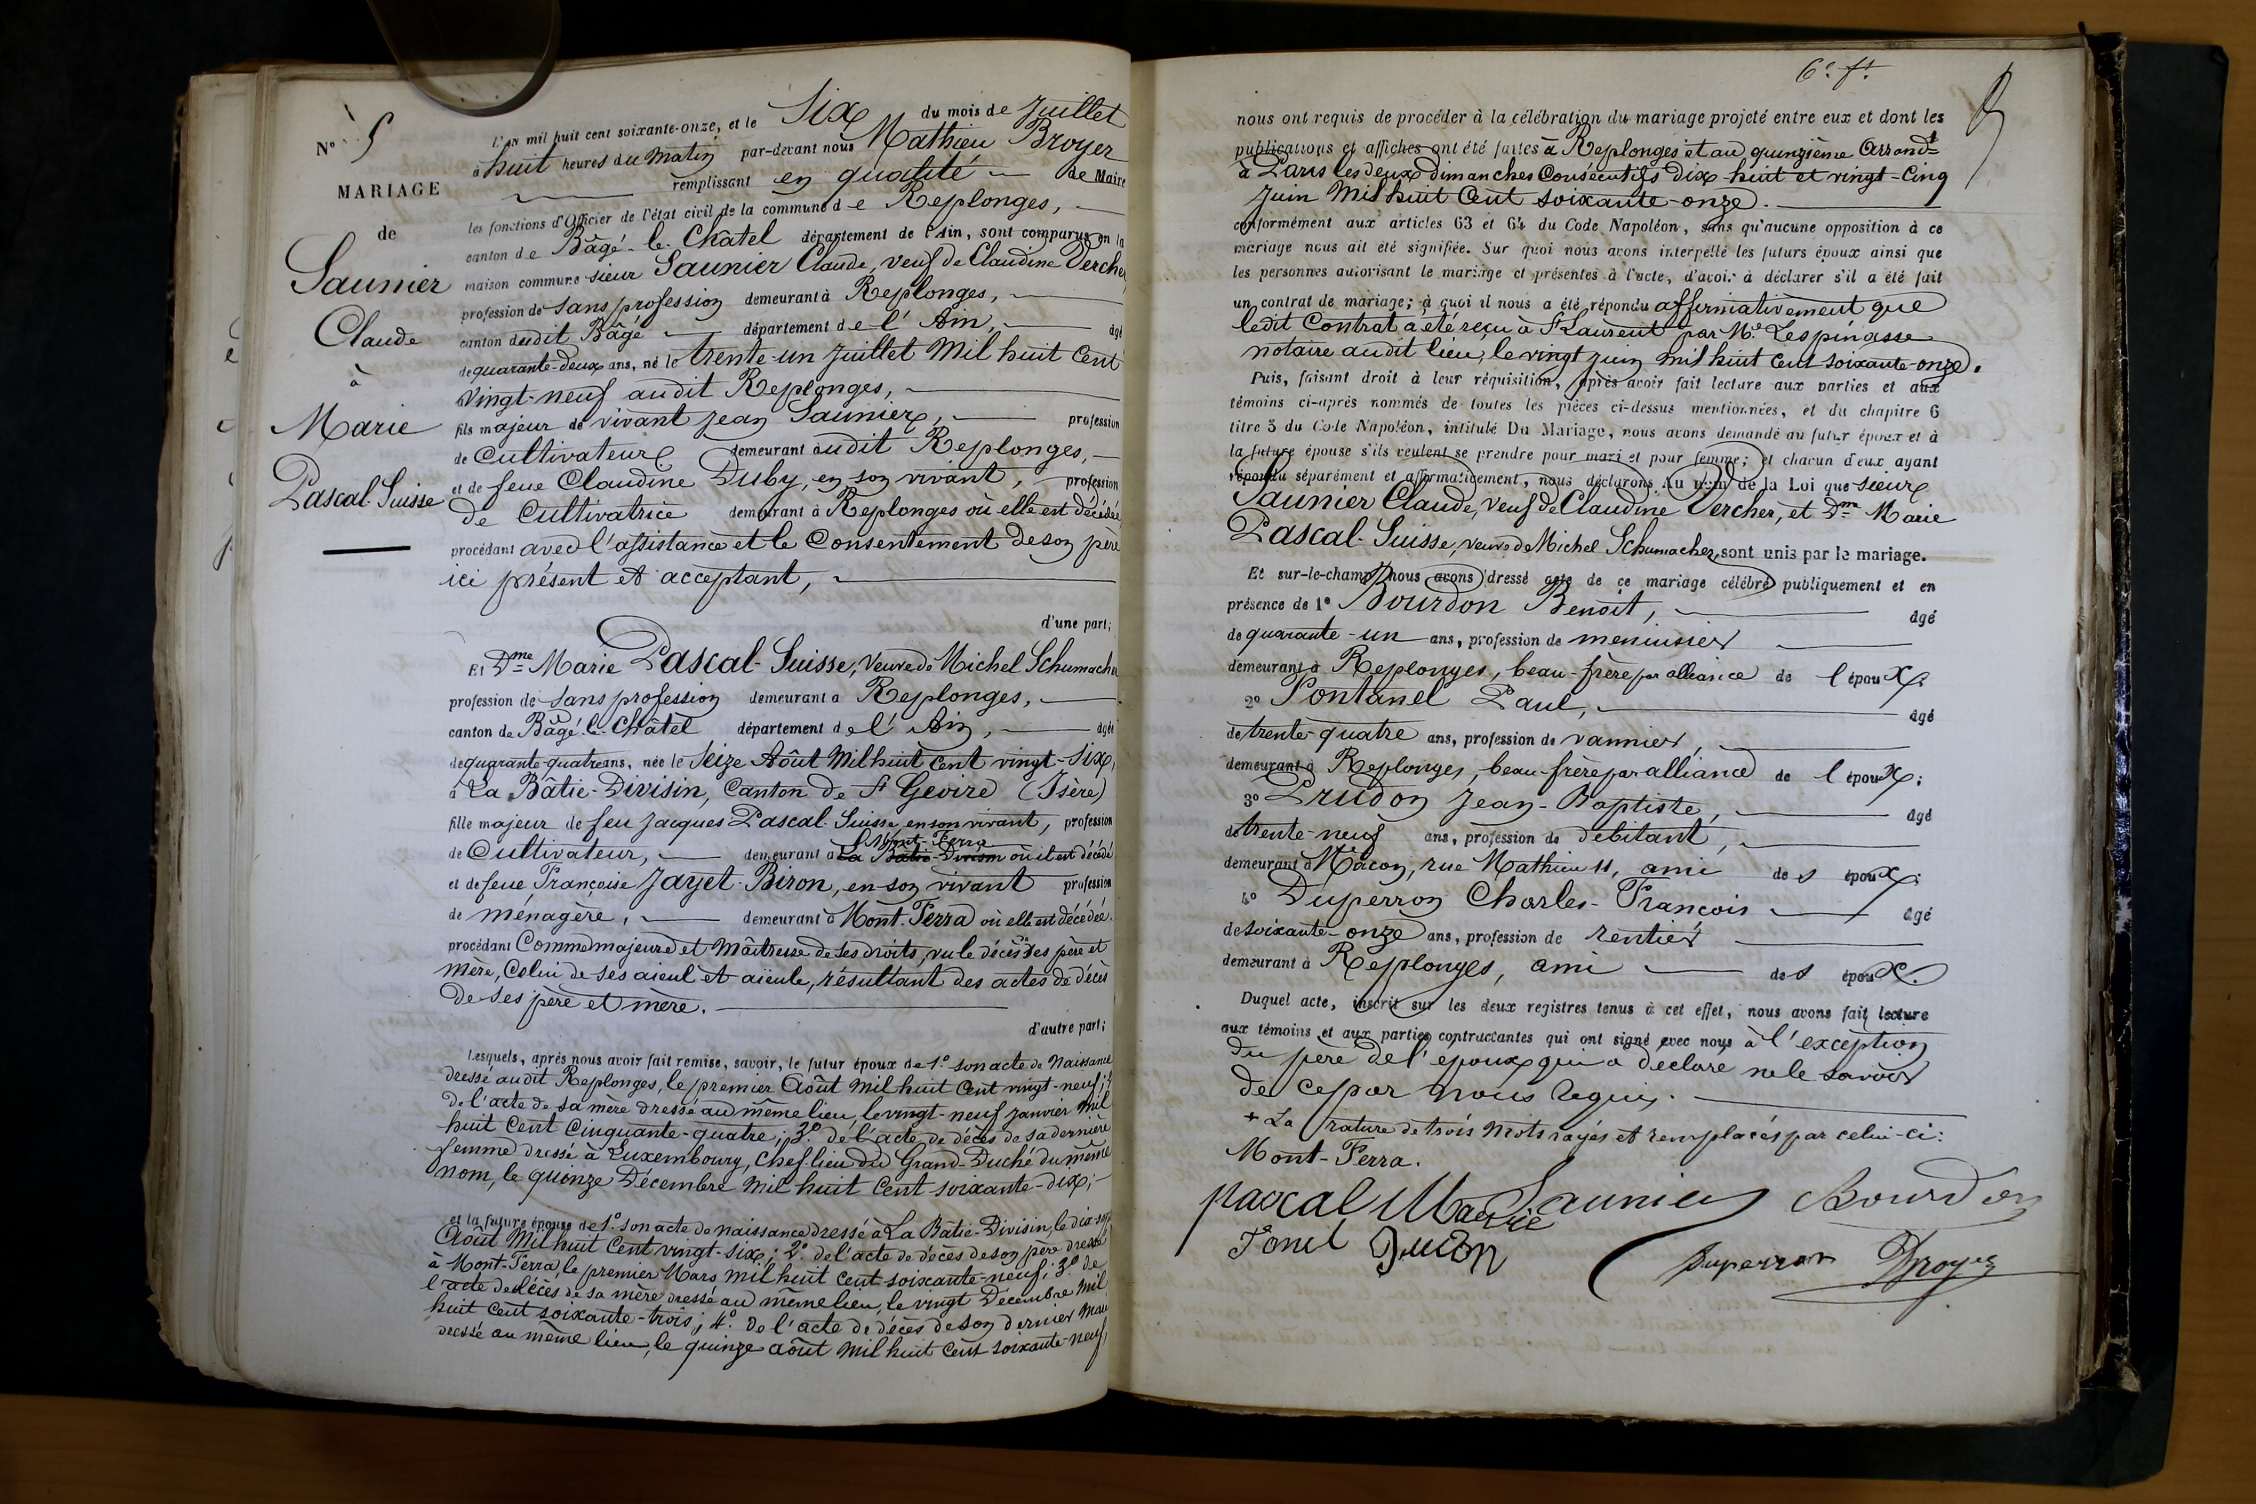 N° 5
MARIAGE
de
Saunier
Claude
à
Marie
Pascal-Suisse
L'an mil huit cent soixante-onze, et le Six du mois de Juillet
à huit heures du matin par-devant nous Mathieu Broyer
remplissant en qualité de Maire
les fonctions d'Officier de l'état civil de la commune de Replonges,
canton de Bâgé-le-Châtel département de l'Ain, sont comparus en la
maison commune sieur Saunier Claude, veuf de Claudine Vercher,
profession de sans profession demeurant à Replonges,
canton dudit Bâgé département de l'Ain, âgé
de quarante-deux ans, né le trente-un Juillet Mil huit Cent
vingt-neuf audit Replonges,
fils majeur de vivant Jean Saunier, profession
de Cultivateur demeurant audit Replonges,
et de feue Claudine Duby, en son vivant, profession
de Cultivatrice demeurant à Replonges où elle est décédée,
procédant avec l'assistance et le Consentement de son père
ici présent et acceptant,
d'une part;
Et Dme Marie Pascal-Suisse, Veuve de Michel Schumacher
profession de sans profession demeurant à Replonges,
canton de Bâgé-le-Châtel département de l'Ain, âgée
de quarante-quatre ans, née le Seize Août Mil huit Cent vingt-six,
à La Bâtie-Divisin, Canton de St Geoire (Isère)
fille majeur de feu Jacques Pascal-Suisse en son vivant, profession
Mont-Ferra
de Cultivateur, demeurant à La Bâtie-Divisin où il est décédé
et de feue Françoise Jayet-Biron, en son vivant profession
de ménagère, demeurant à Mont-Ferra où elle est décédée.
procédant Comme majeure et Maîtresse de ses droits, vu le décès des père et
mère, Celui de ses aïeul et aïeule, résultant des actes de décès
de ses père et mère.
d'autre part;
Lesquels, après nous avoir fait remise, savoir, le futur époux de 1° son acte de Naissance
dressé audit Replonges, le premier Août Mil huit Cent vingt-neuf; 2°
de l'acte de sa mère dressé au même lieu, le vingt-neuf Janvier Mil
huit Cent Cinquante-quatre; 3° de l'acte de décès de sa dernière
femme dressé à Luxembourg, Chef-lieu du Grand-Duché du même
nom, le quinze Décembre Mil huit Cent soixante-dix;
et la future épouse de 1° son acte de naissance dressé à La Bâtie-Divisin, le dix-sept
Août Mil huit Cent vingt-six; 2° de l'acte de décès de son père dressé
à Mont-Ferra, le premier Mars Mil huit cent soixante-neuf; 3° de
l'acte de décès de sa mère dressé au même lieu, le vingt Décembre Mil
huit Cent soixante-trois; 4° de l'acte de décès de son dernier Mari
dressé au même lieu, le quinze août Mil huit Cent soixante-neuf,
6e ft.
nous ont requis de procéder à la célébration du mariage projeté entre eux et dont les
publications et affiches ont été faites à Replonges et au quinzième Arrondt
à Paris les deux Dimanches Consécutifs dix-huit et vingt-Cinq
Juin Mil huit Cent soixante-onze.
conformément aux articles 63 et 64 du Code Napoléon, sans qu'aucune opposition à ce
mariage nous ait été signifiée. Sur quoi nous avons interpellé les futurs époux ainsi que
les personnes autorisant le mariage et présentes à l'acte, d'avoir à déclarer s'il a été fait
un contrat de mariage; à quoi il nous a été répondu affirmativement que
ledit Contrat a été reçu à St Laurent par Me Lespinasse
notaire audit lieu, le vingt Juin Mil huit Cent soixante-onze.
Puis, faisant droit à leur réquisition, après avoir fait lecture aux parties et aux
témoins ci-après nommés de toutes les pièces ci-dessus mentionnées, et du chapitre 6
titre 5 du Code Napoléon, intitulé Du Mariage, nous avons demandé au futur époux et à
la future épouse s'ils veulent se prendre pour mari et pour femme; et chacun d'eux ayant
répondu séparément et affirmativement, nous déclarons Au nom de la Loi que sieur
Saunier Claude, Veuf de Claudine Vercher, et Dme Marie
Pascal-Suisse, veuve de Michel Schumacher, sont unis par le mariage.
Et sur-le-champ nous avons dressé acte de ce mariage célébré publiquement et en
présence de 1° Bourdon Benoit, âgé
de quarante-un ans, profession de menuisier
demeurant à Replonges, beau-frère par alliance de l'époux;
2° Fontanel Paul, âgé
de trente-quatre ans, profession de vannier,
demeurant à Replonges, beau-frère par alliance de l'époux;
3° Prudon Jean-Baptiste, âgé
de trente-neuf ans, profession de débitant,
demeurant à Mâcon, rue Mathieu 11, ami des époux;
4° Duperron Charles-François âgé
de soixante-onze ans, profession de rentier
demeurant à Replonges, ami des époux.
Duquel acte, inscrit sur les deux registres tenus à cet effet, nous avons fait lecture
aux témoins et aux parties contractantes qui ont signé avec nous à l'exception
du père de l'époux qui a déclaré ne le savoir
de ce par nous requis.
+ La rature de trois mots rayés et remplacés par celui-ci:
Mont-Ferra.
pascal Marie Saunier Bourdon
Duperron Broyer